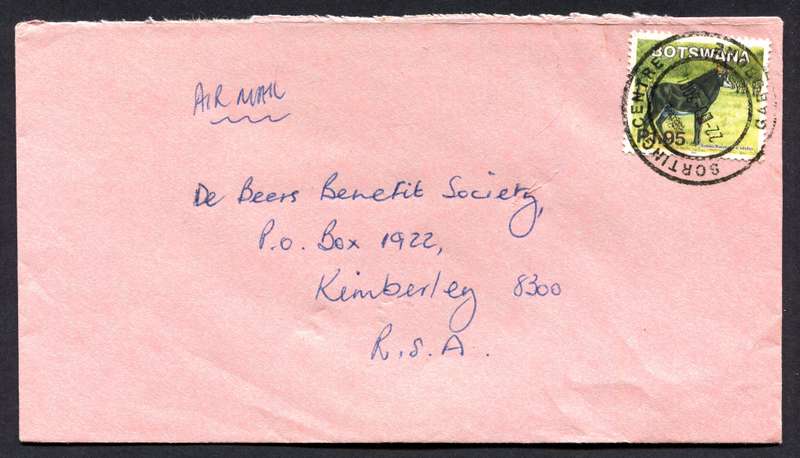 AIR MAIL
BOTSWANA
SORTING CENTRE
De Beers Benefit Society,
P.O. Box 1922,
Kimberley 8300
R.S.A.